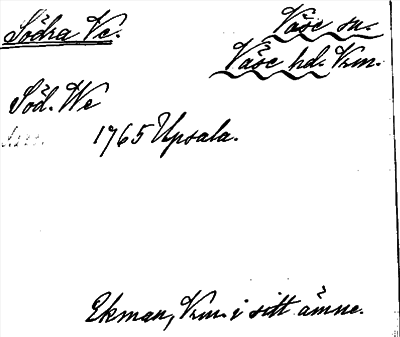 Södra Ve.
Väse sn.
Väse hd. Vrm.
Söd. We
1765 Upsala.
Ekman, Vrm. i sitt ämne.